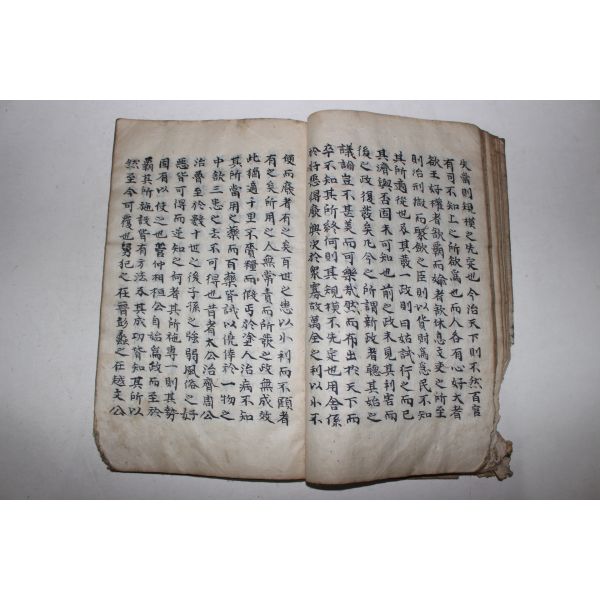 失當則規模之先定也今治天下則不然百官
有司不知上之所欲爲也而人各有心好大者
欲王好權者欲霸而婾者欲休息文吏之所至
則治刑獄而聚斂之臣則以貨財爲急民不知
其所適從也及其發一政則曰姑試行之而已
其濟與否固未可知也前之政未見其利害而
後之政復發矣凡今之所謂新政者聽其始之
議論豈不甚美而可樂哉然而布出於天下而
卒不知其所終何則其規模不先定也用舍係
於好惡廢興決於眾寡故萬全之利以小不
便而廢者有之矣百世之患以小利而不顧者
有之矣所用之人無常責而所發之政無成效
此猶適千里不賫糧而假丐於塗人治病不知
其所當用之藥而百藥皆試以僥倖於一物之
中欲三患之去不可得也昔者太公治齊周公
治魯至於數十世之後子孫之強弱風俗之好
惡皆可得而逆知之何者其所施專一則其勢
固有以使之也管仲相桓公自始爲政而至於
霸其所施設皆有方法及其成功皆知其所以
然至今可覆也舅犯之在晉范蠡之在越文公